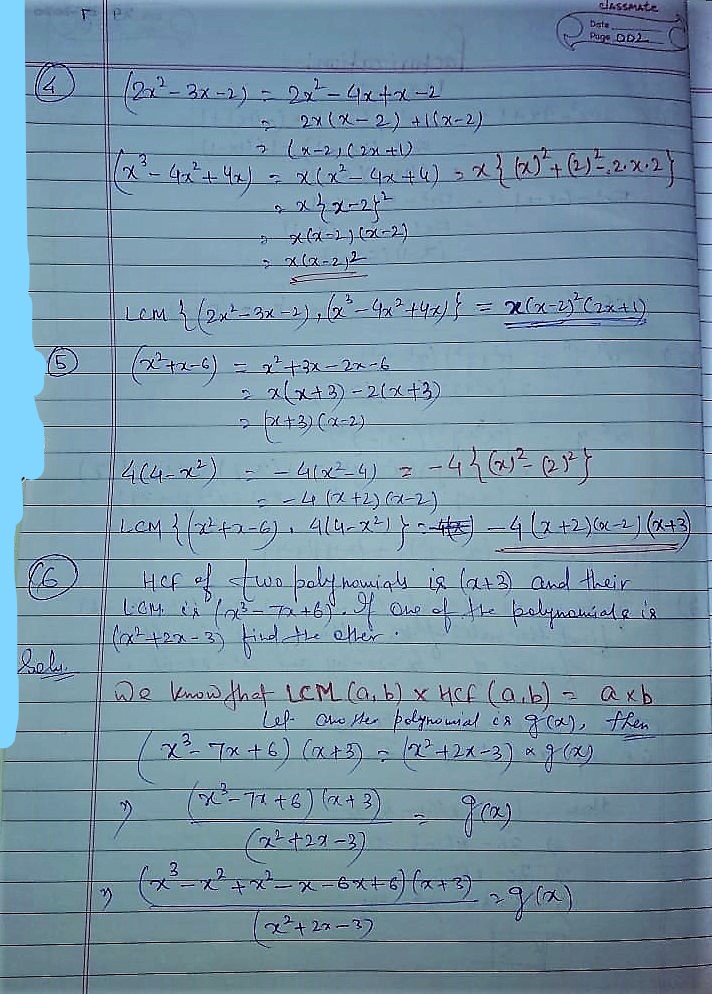 classmate
Date
Page 002
(4) (2x² - 3x - 2) = 2x² - 4x + x - 2
= 2x(x - 2) + 1(x - 2)
= (x - 2)(2x + 1)
(x³ - 4x² + 4x) = x(x² - 4x + 4) = x{(x)² + (2)² - 2·x·2}
= x{x - 2}²
= x(x - 2)(x - 2)
= x(x - 2)²
LCM {(2x² - 3x - 2), (x³ - 4x² + 4x)} = x(x - 2)²(2x + 1)
(5) (x² + x - 6) = x² + 3x - 2x - 6
= x(x + 3) - 2(x + 3)
= (x + 3)(x - 2)
4(4 - x²) = - 4(x² - 4) = - 4{(x)² - (2)²}
= - 4(x + 2)(x - 2)
LCM {(x² + x - 6), 4(4 - x²)} = - 4(x + 2)(x - 2)(x + 3)
(6) HCF of two polynomials is (x + 3) and their
LCM is (x³ - 7x + 6). If one of the polynomials is
(x² + 2x - 3) find the other.
Soln.
We know that LCM (a, b) × HCF (a, b) = a × b
Let another polynomial is g(x), then
(x³ - 7x + 6)(x + 3) = (x² + 2x - 3) × g(x)
⇒ (x³ - 7x + 6)(x + 3) / (x² + 2x - 3) = g(x)
⇒ (x³ - x² + x² - x - 6x + 6)(x + 3) / (x² + 2x - 3) = g(x)